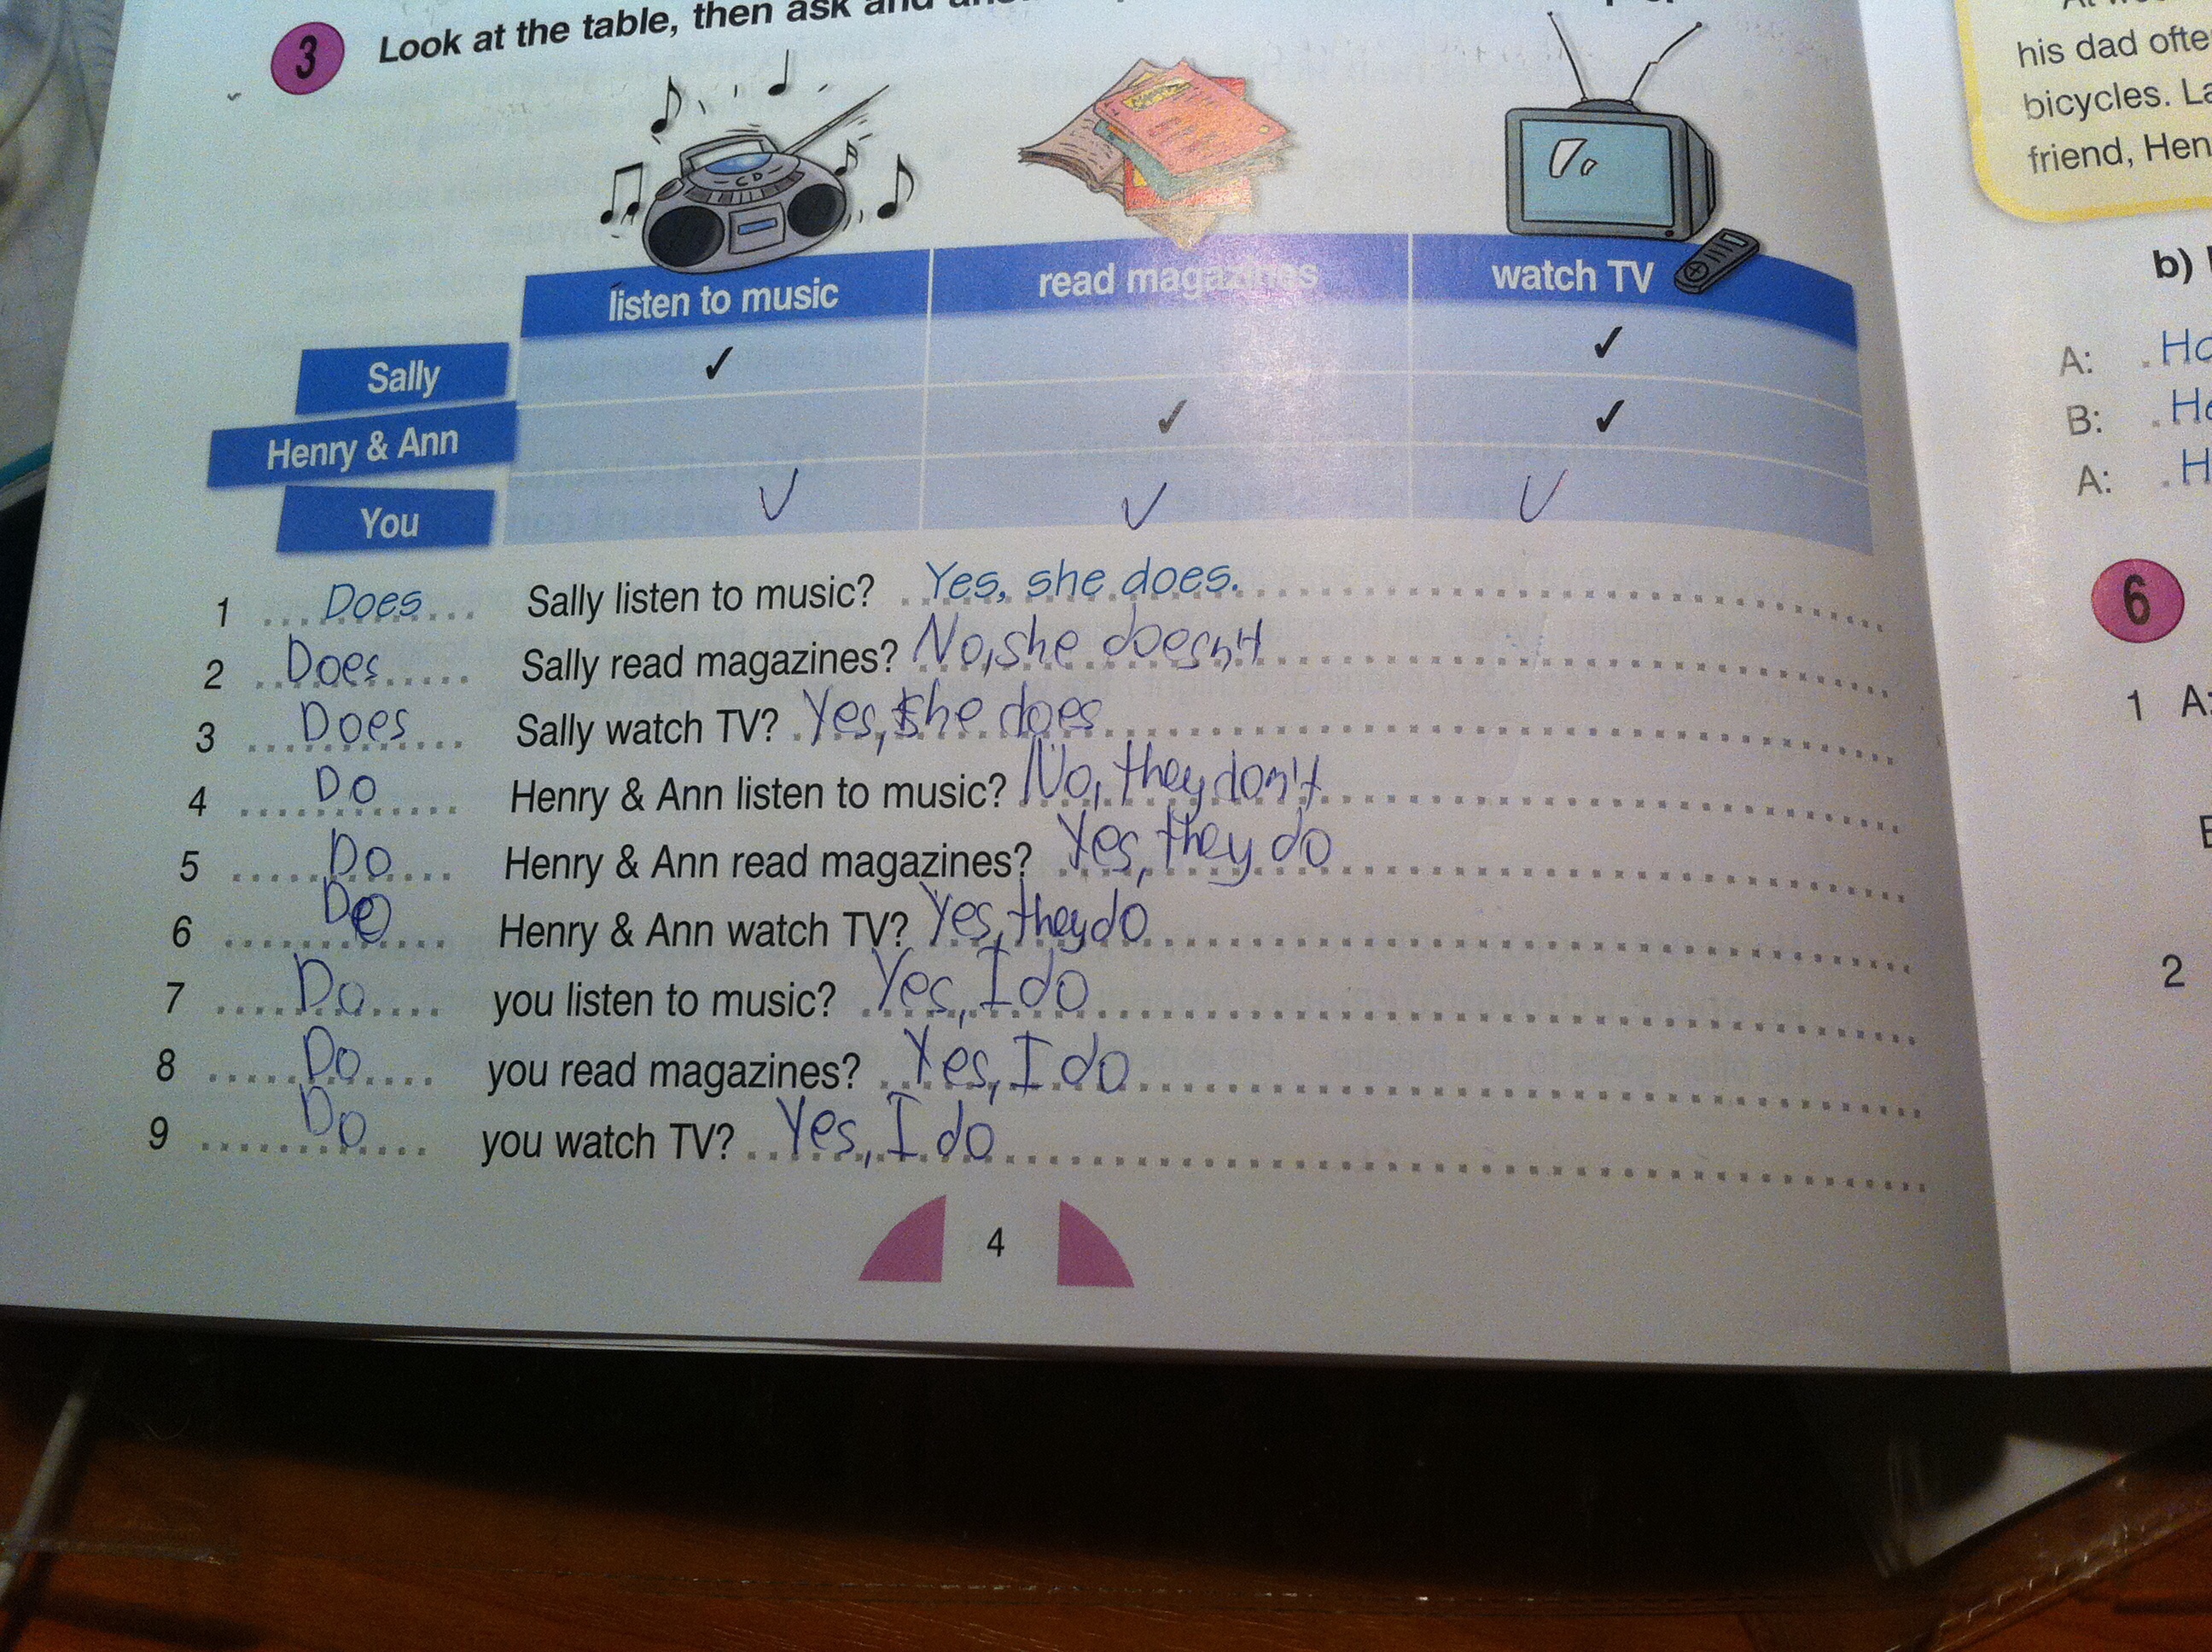 3 Look at the table, then ask and
CD
listen to music read magazines watch TV
Sally ✓ ✓
Henry & Ann ✓ ✓
You V V V
1 Does Sally listen to music? Yes, she does.
2 Does Sally read magazines? No, she doesn't
3 Does Sally watch TV? Yes, she does
4 Do Henry & Ann listen to music? No, they don't
5 Do Henry & Ann read magazines? Yes, they do
6 Do Henry & Ann watch TV? Yes, they do
7 Do you listen to music? Yes, I do
8 Do you read magazines? Yes, I do
9 Do you watch TV? Yes, I do
4
his dad ofte
bicycles. La
friend, Hen
b)
A: Ho
B: He
A: H
6
1 A:
2